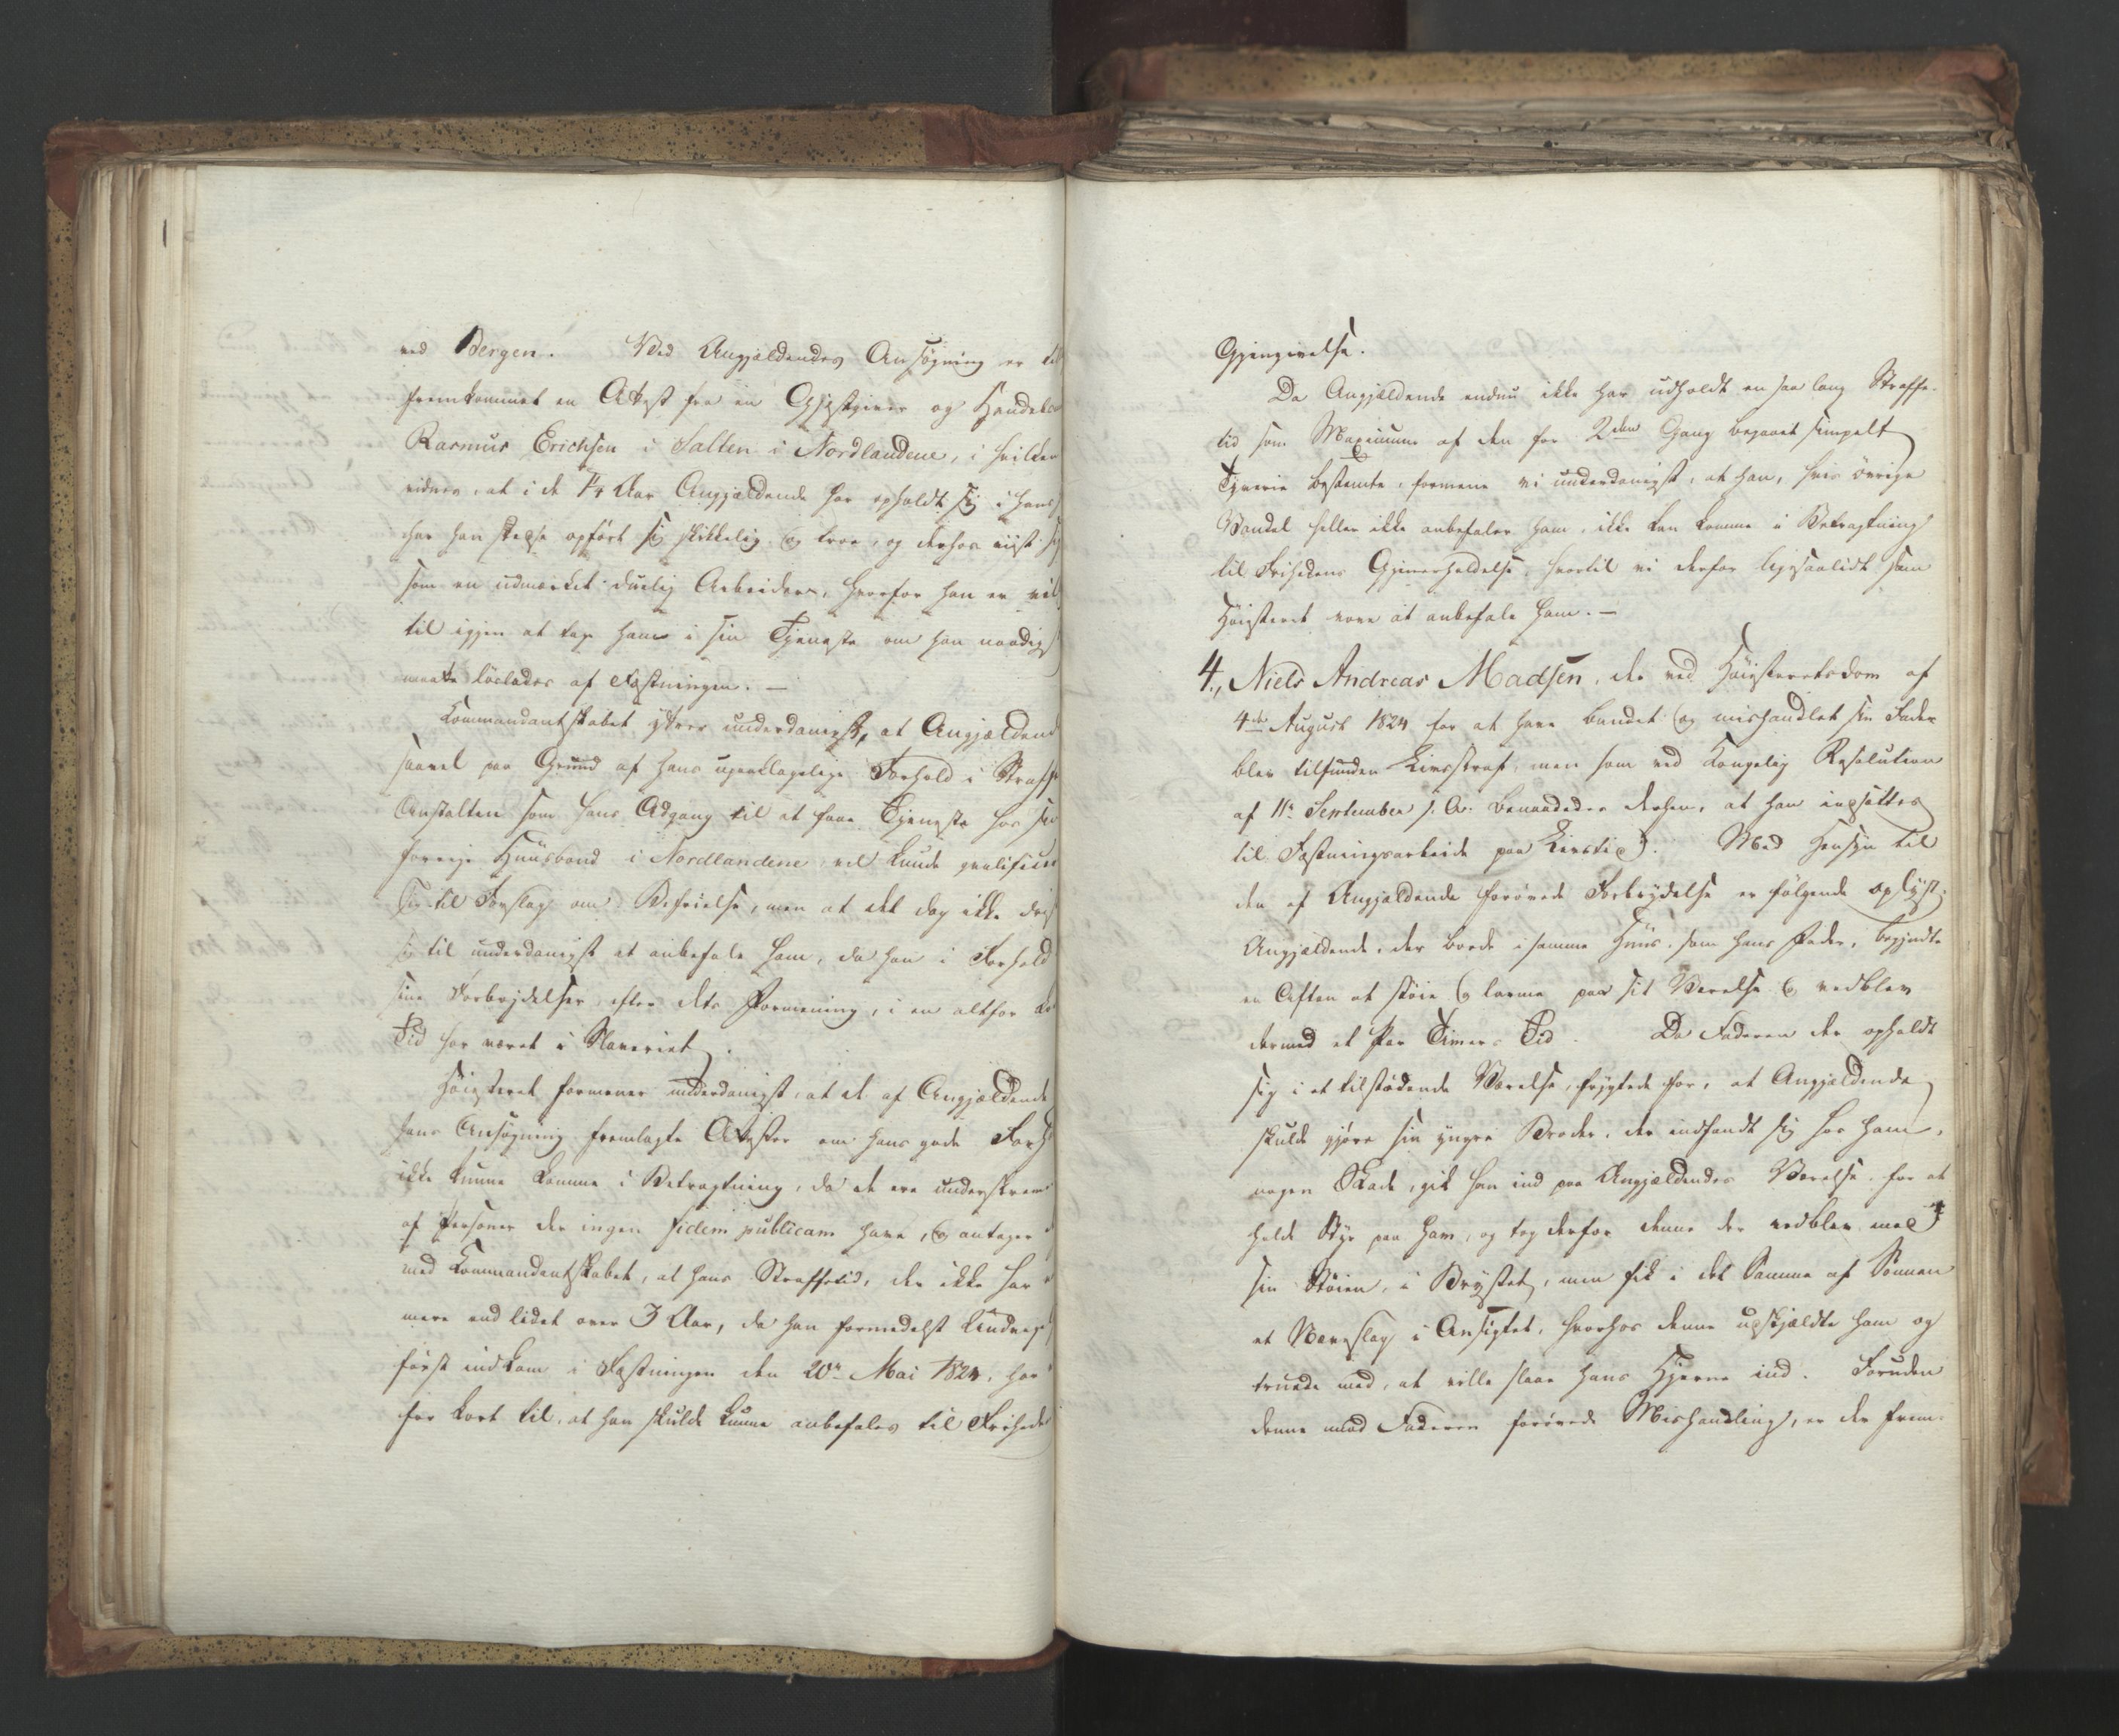 ved Bergen. Ved Angjældendes Ansøgning er til
fremkommet en Attest fra en Gjestgiver og Handels
Rasmus Erichsen i Salten i Nordlandene, i hvilken
vidnes, at i de 1¼ Aar Angjældende har opholdt sig i hans
har han stedse opført sig skikkelig og troe, og derhos viist sig
som en udmærket duelig Arbeider, hvorfor han er vil
til igjen at tage ham i sin Tjeneste om han naadigst
maatte løslades af Fæstningen. —
Kommandantskabet ytrer underdanigst, at Angjældend
saavel paa Grund af hans upaaklagelige Forhold i Straffe
Anstalten som hans Adgang til at faae Tjeneste hos sin
forrige Huusbond i Nordlandene vel kunde qvalificere
sig til Forslag om Befrielse, men at det dog ikke drister
sig til underdanigst at anbefale ham, da han i Forhold
sine Forbrydelser, efter dets Formening, i en altfor kort
Tid har været i Slaveriet.
Høiesteret formener underdanigst, at de af Angjældende
hans Ansøgning fremlagte Attester om hans gode Forh
ikke kunne komme i Betragtning, da de ere underskrevne
af Personer der ingen fidem publicam have, og antager
med Kommandantskabet, at hans Straffetid, der ikke har
mere end lidet over 3 Aar, da han formedelst Undvigelse
først indkom i Fæstningen den 20de Mai 1824, har
for kort til, at han skulde kunne anbefales til Frihedens
Gjengivelse.
Da Angjældende endnu ikke har udholdt en saa lang Straffe-
tid som Maximum af den for 2den Gang begaaet simpelt
Tyverie bestemte, formene vi underdanigst, at han, hvis øvrige
Vandel heller ikke anbefaler ham, ikke kan komme i Betragtning
til Frihedens Gjenerholdelse, hvortil vi derfor ligesaalidt som
Høiesteret vove at anbefale ham. —
4., Niels Andreas Madsen, der ved Høiesteretsdom af
4de August 1824 for at have bandet og mishandlet sin Fader
blev tilfunden Livsstraf, men som ved Kongelig Resolution
af 11te September s. A. benaadedes derhen, at han indsættes
til Fæstningsarbeide paa Livstid. Med Hensyn til
den af Angjældende forøvede Forbrydelse er følgende oplyst:
Angjældende, der boede i samme Huus, som hans Fader, begyndte
en Aften at støie og larme paa sit Værelse og vedblev
dermed et Par Timers Tid. Da Faderen der opholdt
sig i et tilstødende Værelse, frygtede for, at Angjældende
skulde gjøre sin yngre Broder, der indfandt sig hos ham,
nogen Skade, gik han ind paa Angjældendes Værelse for at
holde Styr paa ham, og tog derfor denne der vedblev med
sin Støien, i Brystet, men fik i det Samme af Sønnen
et Næveslag i Ansigtet, hvorhos denne udskjældte ham og
truede med, at ville slaae hans Hjerne ind. Foruden
denne mod Faderen forøvede Mishandling, er der frem-